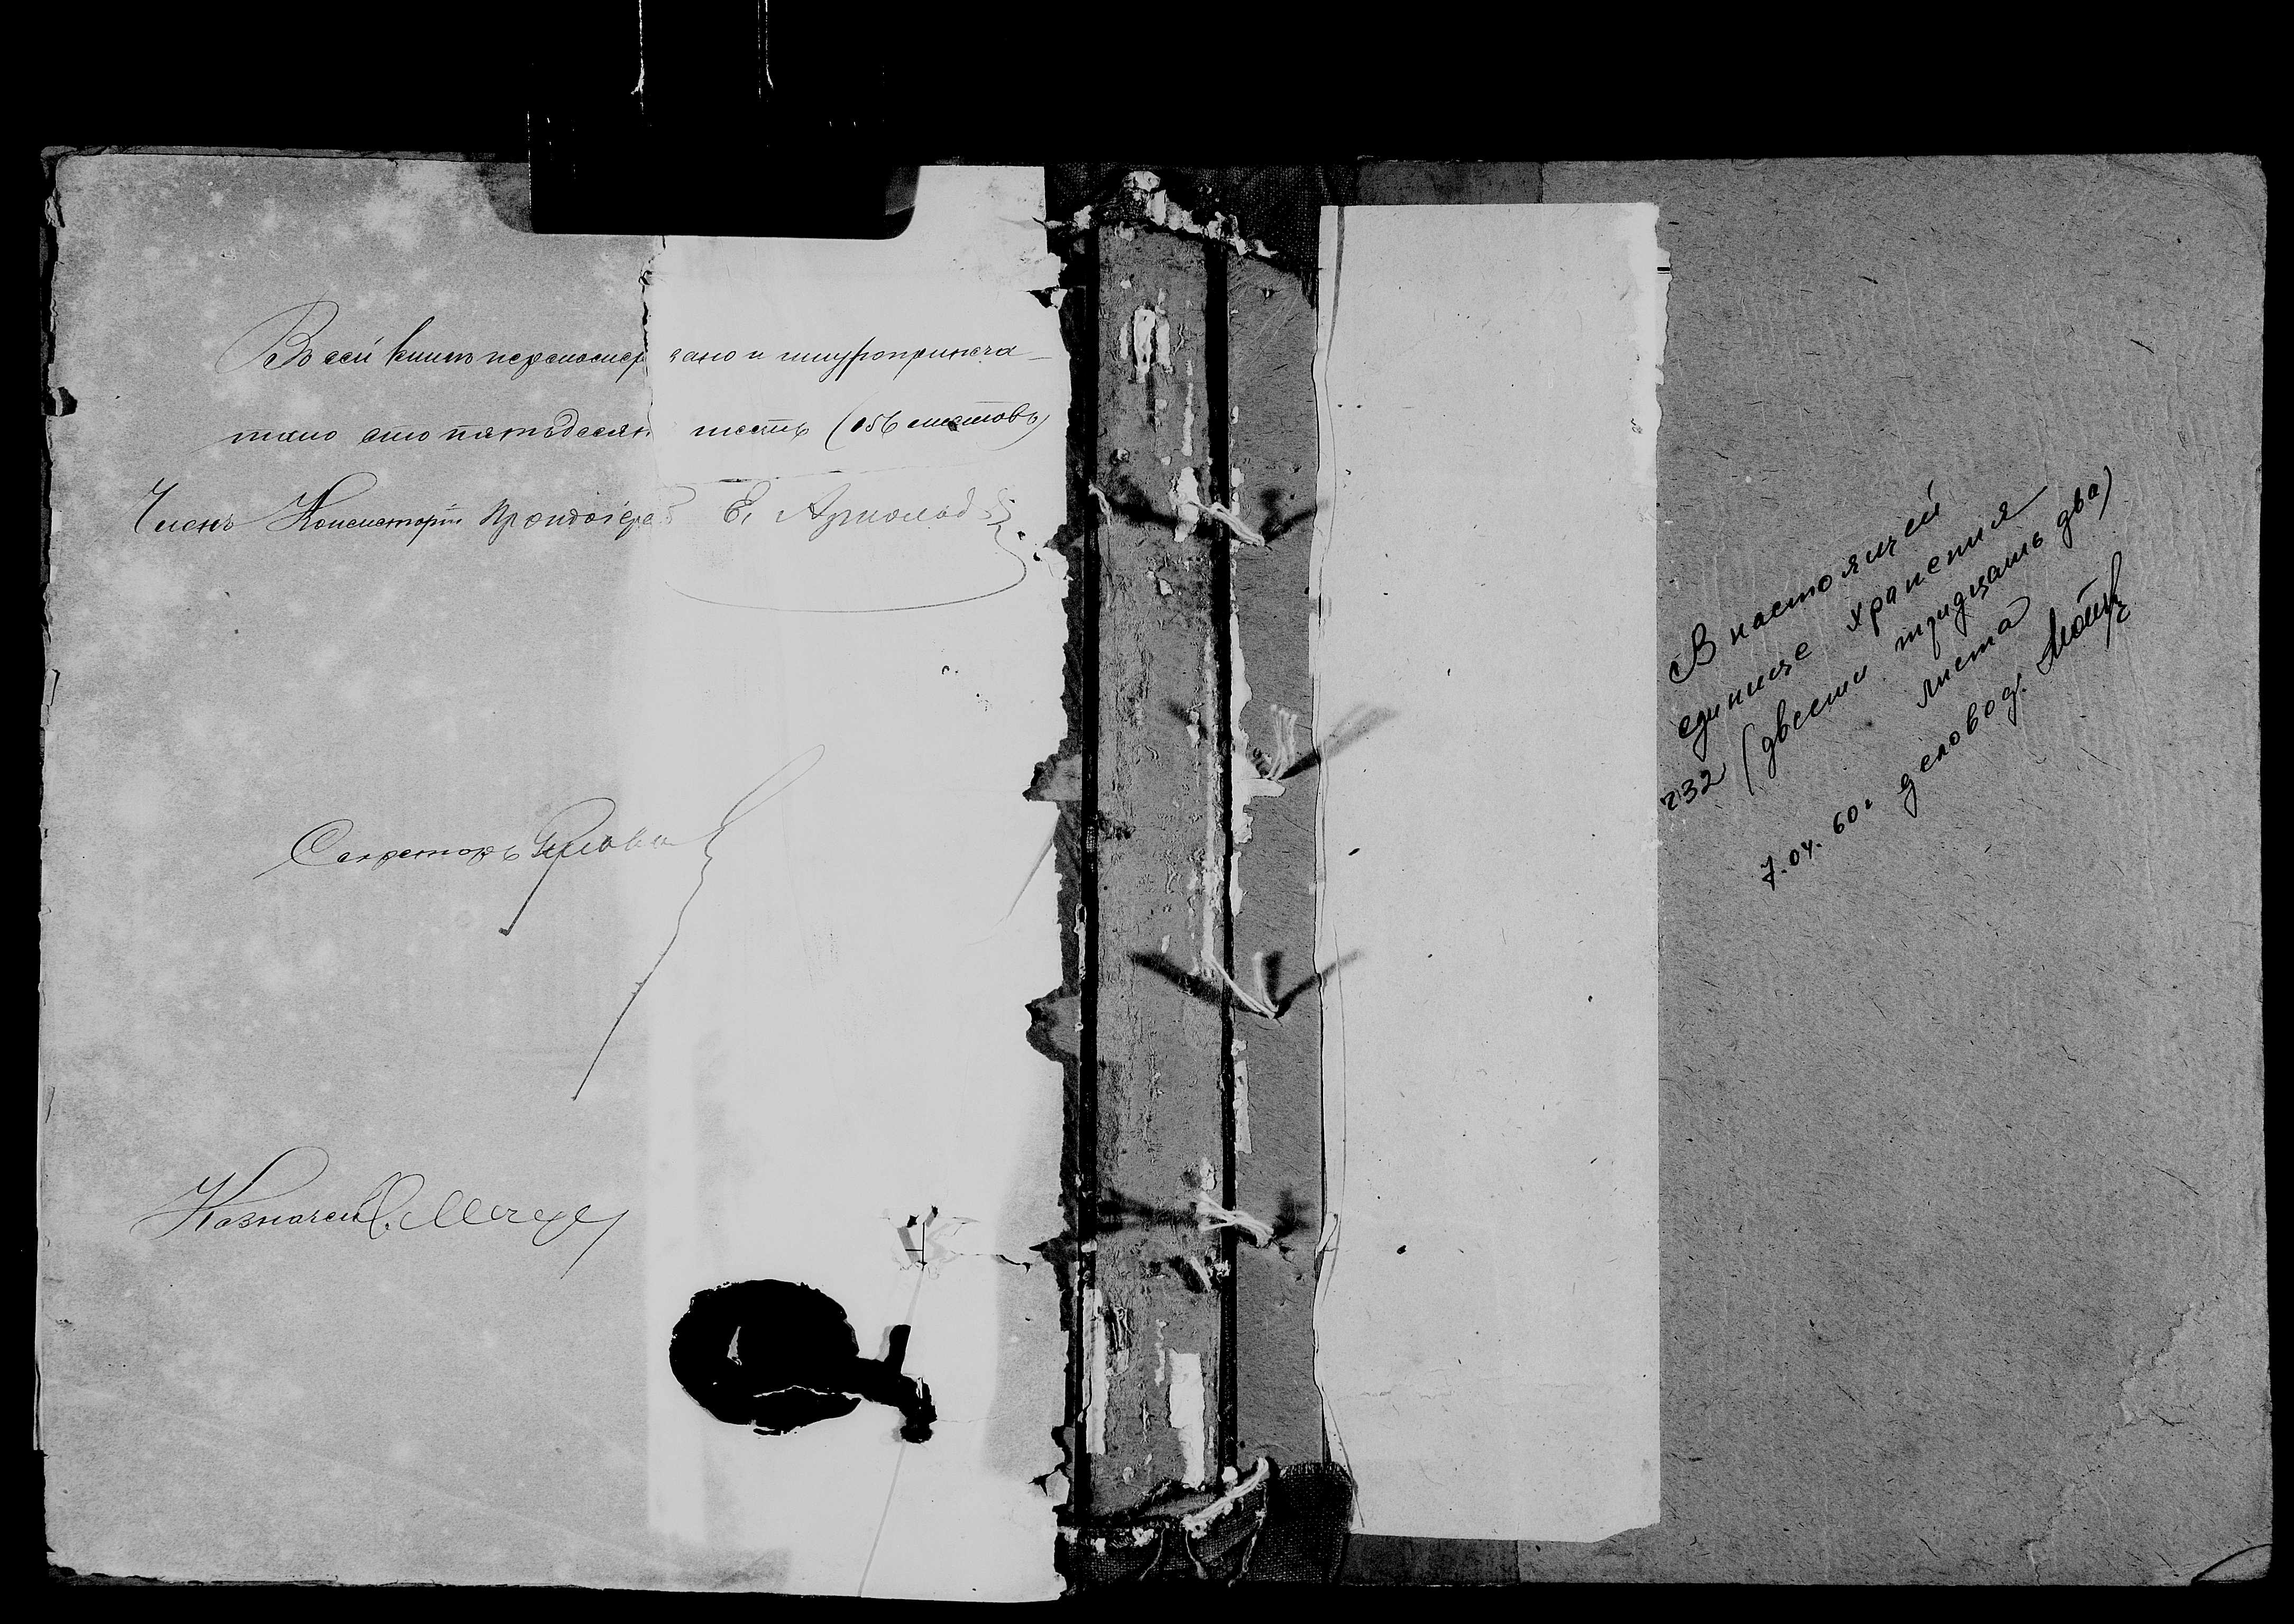 Въ сей книгѣ перенумерованo и шнуроприпеча-
тано сто пятьдесятъ шесть (156 листовъ)
Членъ Консисторіи Протоіерей Е. Арнольдовъ
Секретарь
Казначей
В настоящей
единице хранения
232 (двести тридцать два)
листа
7.04.60г деловод.